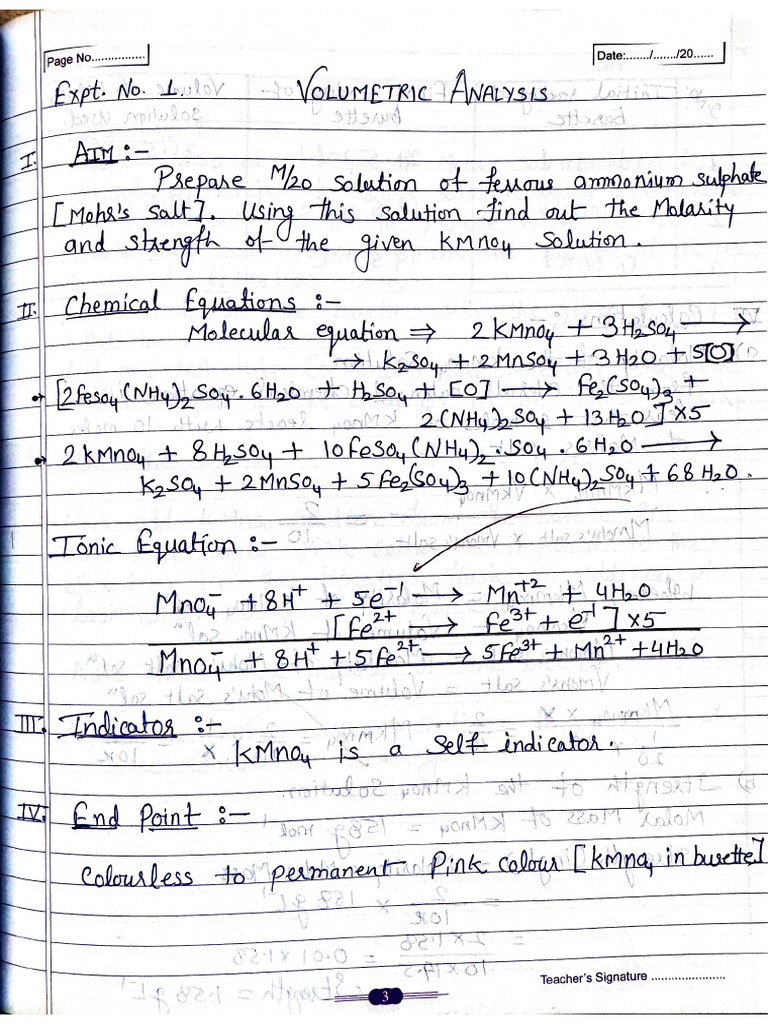 Page No...............
Date:......./......./20......
Expt. No. 1. VOLUMETRIC ANALYSIS
I. AIM :-
Prepare M/20 solution of ferrous ammonium sulphate
[Mohr's salt]. Using this solution find out the Molarity
and strength of the given KMnO4 Solution.
II. Chemical Equations :-
Molecular equation ⇒ 2KMnO4 + 3H2SO4 ⟶
→ K2SO4 + 2MnSO4 + 3H2O + 5[O]
• [2FeSO4(NH4)2SO4·6H2O + H2SO4 + [O] ⟶ Fe2(SO4)3 +
2(NH4)2SO4 + 13H2O] ×5
• 2KMnO4 + 8H2SO4 + 10FeSO4(NH4)2·SO4·6H2O ⟶
K2SO4 + 2MnSO4 + 5Fe2(SO4)3 + 10(NH4)2SO4 + 68H2O.
Ionic Equation :-
MnO4⁻ + 8H⁺ + 5e⁻¹ ⟶ Mn⁺² + 4H2O
[Fe²⁺ ⟶ Fe³⁺ + e⁻¹] ×5
MnO4⁻ + 8H⁺ + 5Fe²⁺ ⟶ 5Fe³⁺ + Mn²⁺ + 4H2O
III. Indicator :-
KMnO4 is a Self indicator.
IV. End Point :-
Colourless to permanent Pink colour [KMnO4 in burette]
Teacher's Signature ........................
3